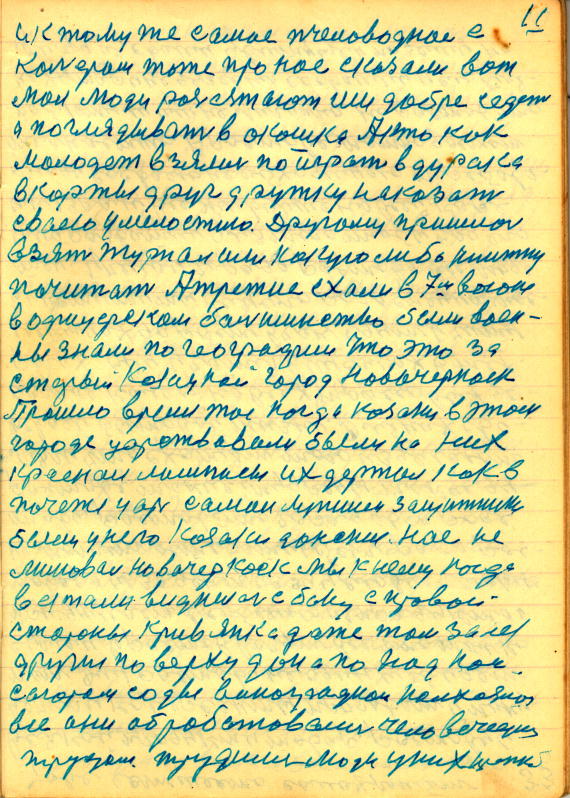 11
и к тому же самое пчеловодное с
тоже про нас сказали вот
мол люди сидят
и поглядывать в окошка А кто как
молодеж взялись поиграть в дурака
в карты друг дружку наказать
своею умелостию. Другому пришлось
взят журнал или какую либо книжку
почитать А третие ехали в 7м вагоне
в офицерском большинство были воен-
ны знали по географии Что это за
старый Козацкой город Новочеркаск
Прошло время тое когда козаки в этом
городе царствовали были на них
красные лампасы их держал как в
почете царь самаи лучшии защитники
были у него Козаки донские. Нас не
миновал Новочеркаск мы к нему когда
встали виднелся с боку с правой-
стороны Кривянка даже там
други по верху дона по над
сады виноградной колхозной
все они обработовались человеческим
трудом трудились люди у них